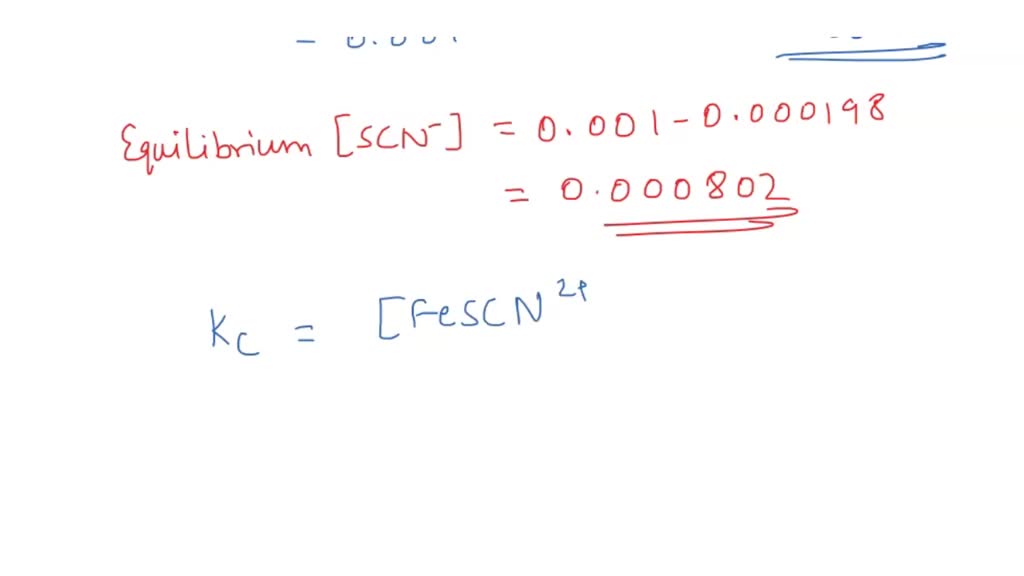 Equilibrium [SCN⁻] = 0.001 - 0.000198
= 0.000802
Kc = [FeSCN²⁺